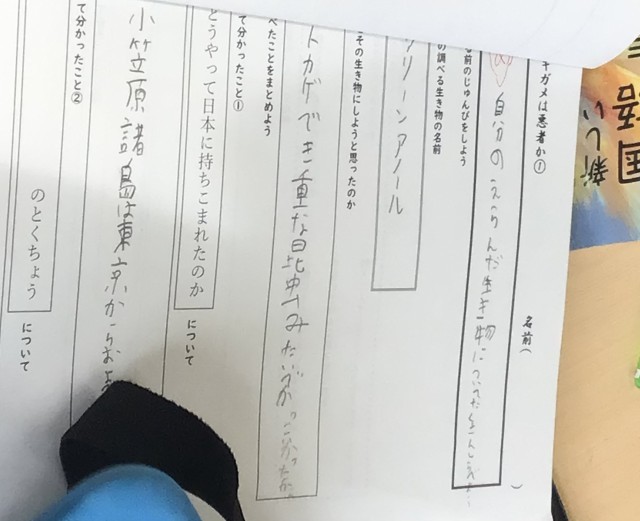 国語
新しい
ギガメは悪者か①
名前(
)
名前のじゅんびをしよう
自分のえらんだ生き物に
の調べる生き物の名前
グリーンアノール
その生き物にしようと思ったのか
トカゲでき重な昆虫
べたことをまとめよう
て分かったこと①
どうやって日本に持ちこまれたのか
について
小笠原諸島は東京からお
て分かったこと②
のとくちょう
について